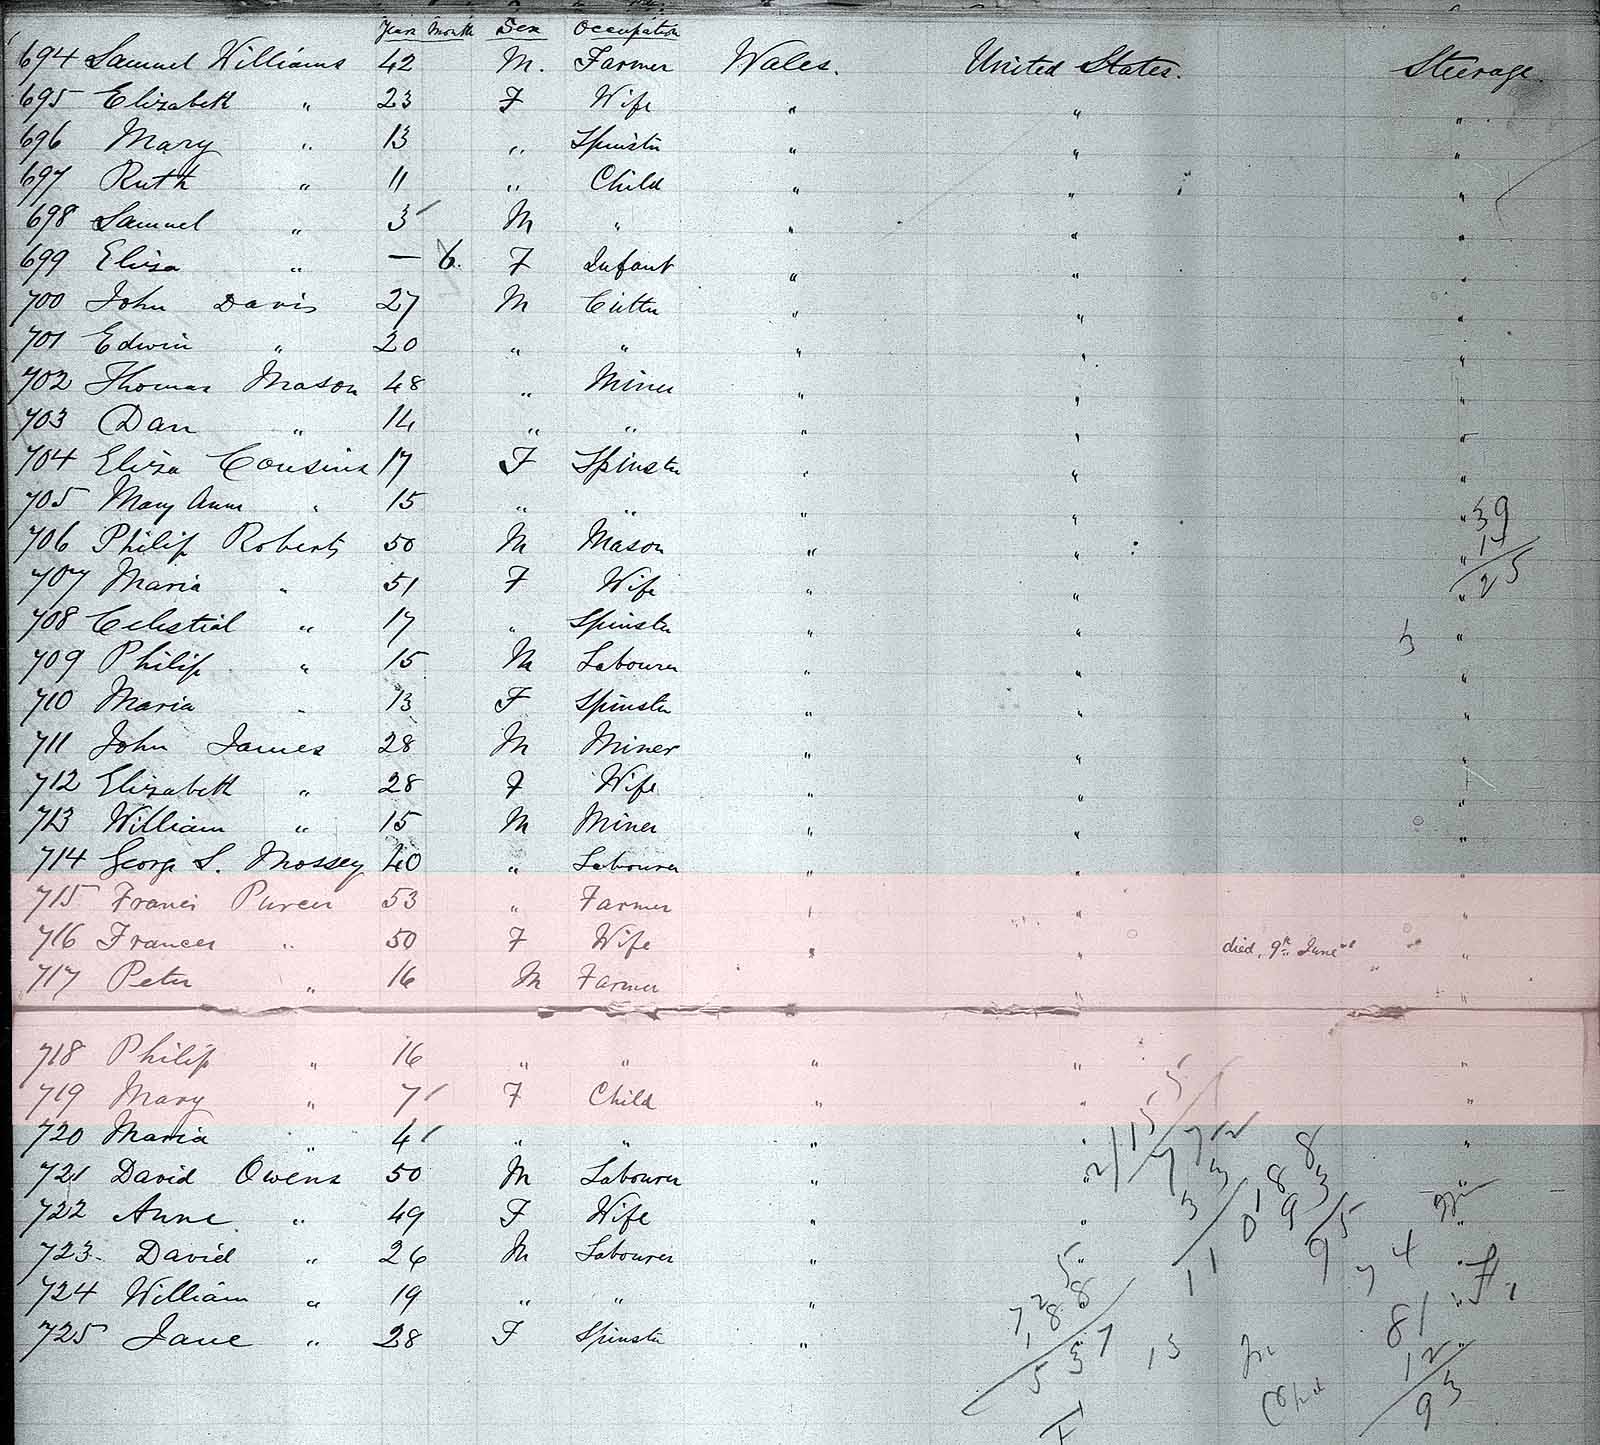 Years Month Sex Occupation
694 Samuel Williams 42 M. Farmer Wales. United States. Steerage.
695 Elizabeth " 23 F Wife " " "
696 Mary " 13 " Spinster " " "
697 Ruth " 11 " Child " " "
698 Samuel " 3 M " " " "
699 Eliza " — 6. F Infant " " "
700 John Davis 27 M Cutter " " "
701 Edwin " 20 " " " " "
702 Thomas Mason 48 " Miner " "
703 Dan " 14 " " " " "
704 Eliza Cousins 17 F Spinster " " "
705 Mary Ann " 15 " " " " " 39
706 Philip Roberts 50 M Mason " " " 14
707 Maria " 51 F Wife " " " 25
708 Celestial " 17 " Spinster " " "
709 Philip " 15 M Labourer " " "
710 Maria " 13 F Spinster " " "
711 John James 28 M Miner " " "
712 Elizabeth " 28 F Wife " " "
713 William " 15 M Miner " " "
714 George S. Mossey 40 " Labourer " " "
715 Francis 53 " Farmer " " "
716 Frances " 50 F Wife " " died, 9th June "
717 Peter " 16 M Farmer " "
718 Philip " 16 " " " " "
719 Mary " 7 F Child " " "
720 Maria " 4 " " " " "
721 David Owens 50 M Labourer " " "
722 Anne " 49 F Wife " " "
723 David " 26 M Labourer " " "
724 William " 19 " " " "
725 Jane " 28 F Spinster " "
81
12
93